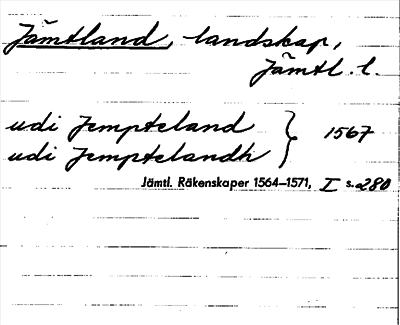 Jämtland, landskap,
Jämtl. l.
udi Jempteland } 1567
udi Jemptelandh
Jämtl. Räkenskaper 1564–1571, I s. 280